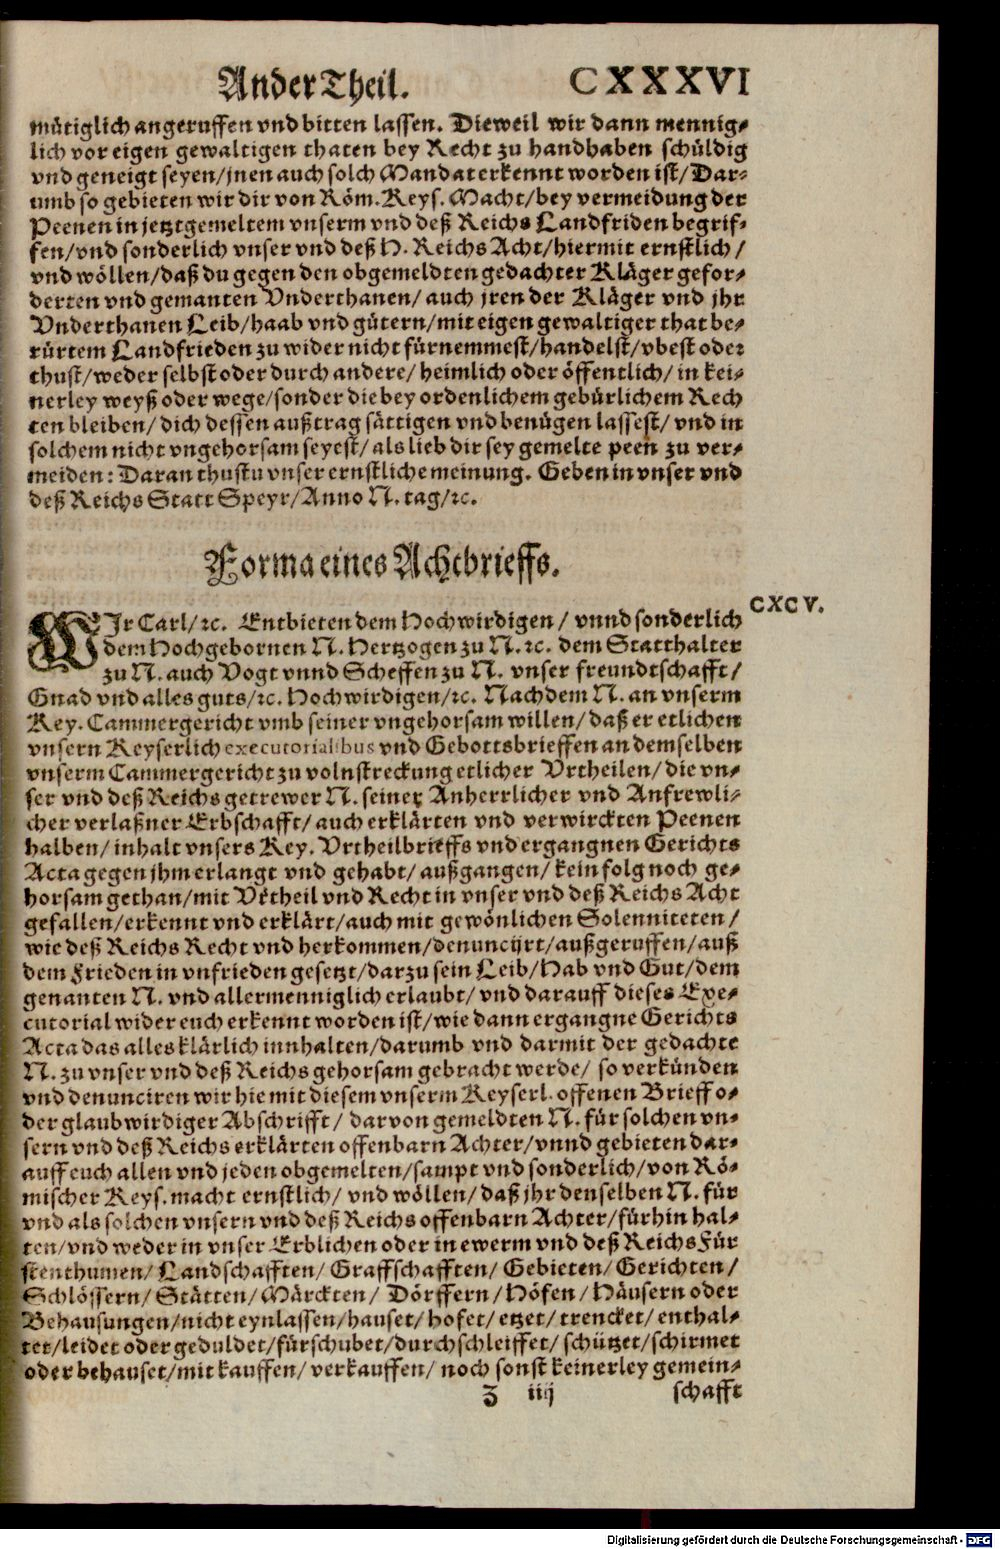 Ander Theil. CXXXVI
mütiglich angeruffen vnd bitten lassen. Dieweil wir dann mennig-
lich vor eigen gewaltigen thaten bey Recht zu handhaben schüldig
vnd geneigt seyen/jnen auch solch Mandat erkennt worden ist/Dar-
umb so gebieten wir dir von Röm. Keys. Macht/bey vermeidung der
Peenen in jetztgemeltem vnserm vnd deß Reichs Landfriden begrif-
fen/vnd sonderlich vnser vnd deß H. Reichs Acht/hiermit ernstlich/
vnd wöllen/daß du gegen den obgemeldten gedachter Kläger gefor-
derten vnd gemanten Vnderthanen/ auch jren der Kläger vnd jhr
Vnderthanen Leib/haab vnd gütern/mit eigen gewaltiger that be-
rürtem Landfrieden zu wider nicht fürnemmest/handelst/vbest oder
thust/weder selbst oder durch andere/ heimlich oder öffentlich/ in kei-
nerley weyß oder wege/sonder die bey ordenlichem gebürlichem Rech
ten bleiben/ dich dessen außtrag sättigen vnd benügen lassest/ vnd in
solchem nicht vngehorsam seyest/ als lieb dir sey gemelte peen zu ver-
meiden: Daran thustu vnser ernstliche meinung. Geben in vnser vnd
deß Reichs Statt Speyr/Anno N. tag/ꝛc.
Forma eines Achtbrieffs.
CXCV.
WIr Carl/ꝛc. Entbieten dem Hochwirdigen/ vnnd sonderlich
dem Hochgebornen N. Hertzogen zu N. ꝛc. dem Statthalter
zu N. auch Vogt vnnd Scheffen zu N. vnser freundtschafft/
Gnad vnd alles guts/ꝛc. Hochwirdigen/ꝛc. Nachdem N. an vnserm
Key. Cammergericht vmb seiner vngehorsam willen/ daß er etlichen
vnsern Keyserlich executorialibus vnd Gebottsbrieffen an demselben
vnserm Cammergericht zu volnstreckung etlicher Vrtheilen/ die vn-
ser vnd deß Reichs getrewer N. seiner Anherrlicher vnd Anfrewli-
cher verlaßner Erbschafft/ auch erklärten vnd verwirckten Peenen
halben/ inhalt vnsers Key. Vrtheilbrieffs vnd ergangnen Gerichts
Acta gegen jhm erlangt vnd gehabt/ außgangen/ kein folg noch ge-
horsam gethan/mit Vrtheil vnd Recht in vnser vnd deß Reichs Acht
gefallen/erkennt vnd erklärt/auch mit gewönlichen Solenniteten/
wie deß Reichs Recht vnd herkommen/denuncijrt/außgeruffen/auß
dem Frieden in vnfrieden gesetzt/darzu sein Leib/Hab vnd Gut/dem
genanten N. vnd allermenniglich erlaubt/ vnd darauff dieses Exe-
cutorial wider euch erkennt worden ist/wie dann ergangne Gerichts
Acta das alles klärlich innhalten/darumb vnd darmit der gedachte
N. zu vnser vnd deß Reichs gehorsam gebracht werde/ so verkünden
vnd denunciren wir hie mit diesem vnserm Keyserl. offenen Brieff o-
der glaubwirdiger Abschrifft/ darvon gemeldten N. für solchen vn-
sern vnd deß Reichs erklärten offenbarn Achter/vnnd gebieten dar-
auff euch allen vnd jeden obgemelten/sampt vnd sonderlich/von Rö-
mischer Keys. macht ernstlich/ vnd wöllen/ daß jhr denselben N. für
vnd als solchen vnsern vnd deß Reichs offenbarn Achter/fürhin hal-
ten/vnd weder in vnser Erblichen oder in ewerm vnd deß Reichs Für
stenthumen/ Landschafften/ Graffschafften/ Gebieten/ Gerichten/
Schlössern/ Stätten/ Märckten/ Dörffern/ Höfen/ Häusern oder
Behausungen/nicht eynlassen/hauset/ hofet/ etzet/ trencket/ enthal-
tet/leidet oder geduldet/fürschubet/durchschleiffet/ schützet/schirmet
oder behauset/mit kauffen/ verkauffen/ noch sonst keinerley gemein-
Z iiij schafft
Digitalisierung gefördert durch die Deutsche Forschungsgemeinschaft - DFG